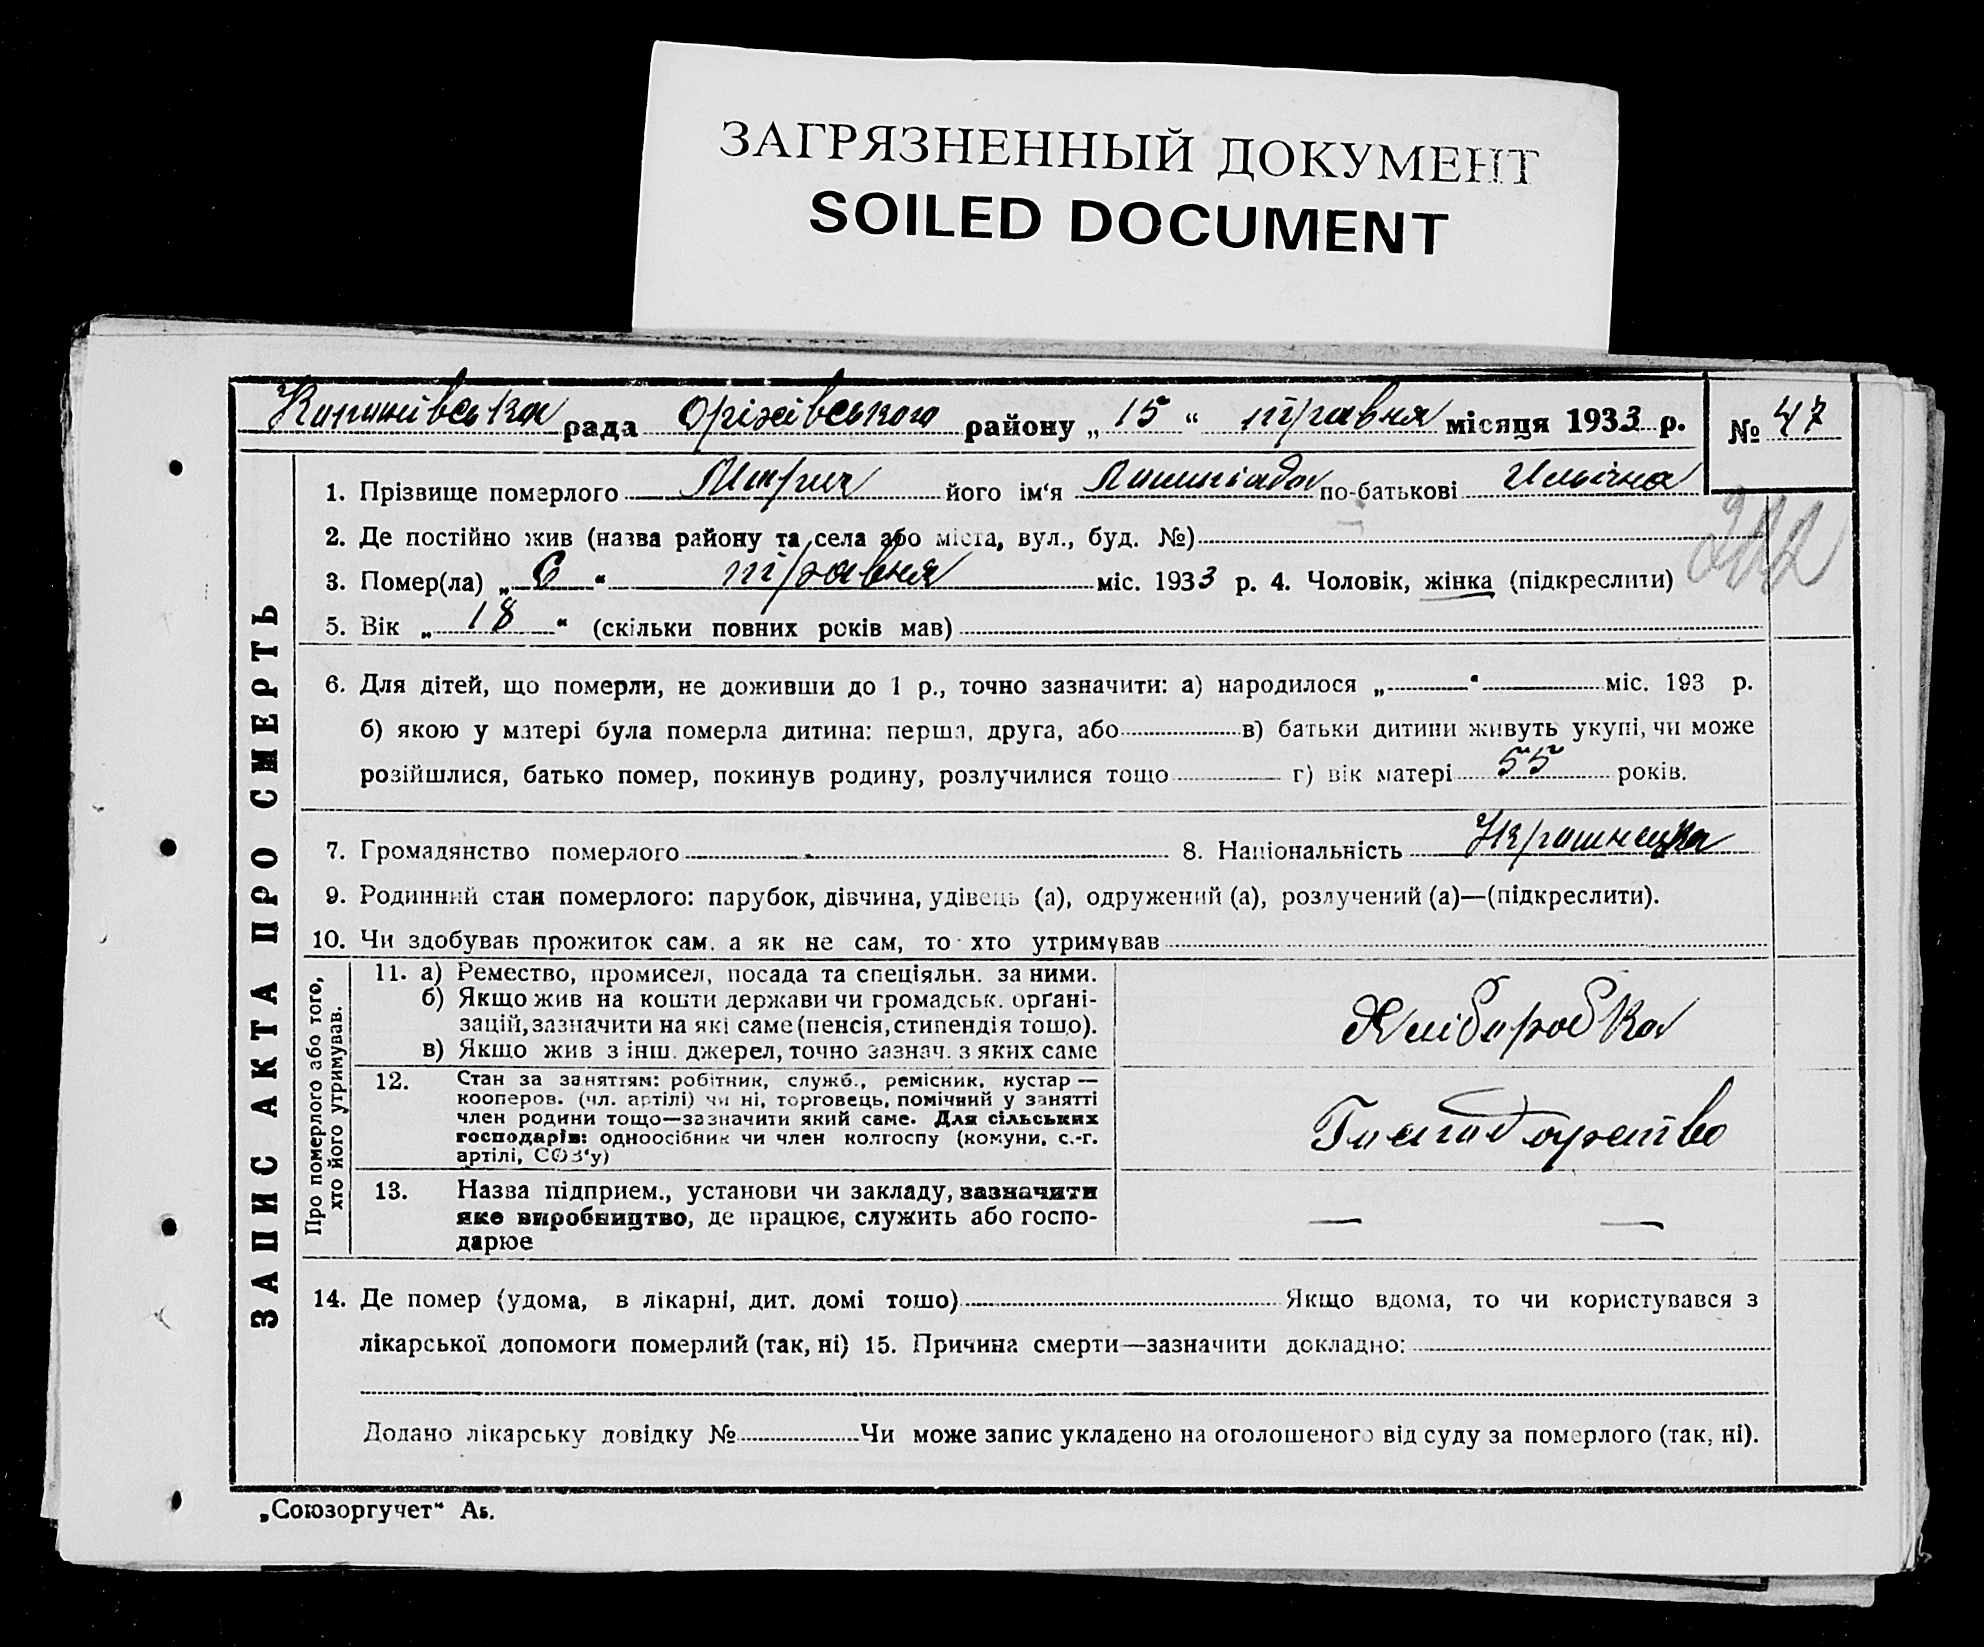 ЗАГРЯЗНЕННЫЙ ДОКУМЕНТ
SOILED DOCUMENT
рада Оріхівського району „ 15 “ травня місяця 1933 р. № 47
1. Прізвище померлого його ім‘я по-батькові
2. Де постійно жив (назва району та села або міста, вул., буд. №)
3. Помер(ла) „ 6 “ травня міс. 1933 р. 4. Чоловік, жінка (підкреслити)
5. Вік „ 18 “ (скільки повних років мав)
6. Для дітей, що померли, не доживши до 1 р., точно зазначити: а) народилося „ “ міс. 193 р.
б) якою у матері була померла дитина: перша, друга, або в) батьки дитини живуть укупі, чи може
розійшлися, батько помер, покинув родину, розлучилися тощо г) вік матері 55 років.
7. Громадянство померлого 8. Національність Украинська
9. Родинний стан померлого: парубок, дівчина, удівець (а), одружений (а), розлучений (а)—(підкреслити).
10. Чи здобував прожиток сам, а як не сам, то хто утримував
11. а) Ремество, промисел, посада та спеціяльн. за ними.
б) Якщо жив на кошти держави чи громадськ. орґані-
зацій, зазначити на які саме (пенсія, стипендія тощо).
в) Якщо жив з інш. джерел, точно зазнач. з яких саме
Хліборобка
12. Стан за заняттям: робітник, служб., ремісник, кустар —
кооперов. (чл. артілі) чи ні, торговець, помічний у занятті
член родини тощо—зазначити який саме. Для сільських
господарів: одноосібник чи член колгоспу (комуни, с.-г.
артілі, СОЗ‘у)
Господарство
13. Назва підприєм., установи чи закладу, зазначити
яке виробництво, де працює, служить або госпо-
дарює
— —
14. Де помер (удома, в лікарні, дит. домі тощо) Якщо вдома, то чи користувався з
лікарської допомоги померлий (так, ні) 15. Причина смерти—зазначити докладно:
Додано лікарську довідку № Чи може запис укладено на оголошеного від суду за померлого (так, ні).
„Союзоргучет“ Аб.
ЗАПИС АКТА ПРО СМЕРТЬ
Про померлого або того,
хто його утримував.